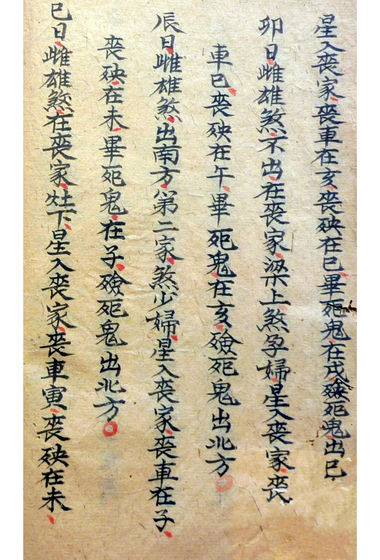 星入喪家喪車在亥喪殃在巳畢死鬼在戌殮死鬼出巳
卯日雌雄煞不出在喪家梁上煞孕婦星入喪家喪
車巳喪殃在午畢死鬼在亥殮死鬼出北方
辰日雌雄煞出南方第二家煞少婦星入喪家喪車在子
喪殃在未畢死鬼在子殮死鬼出北方
巳日雌雄煞在喪家灶下星入喪家喪車寅喪殃在未